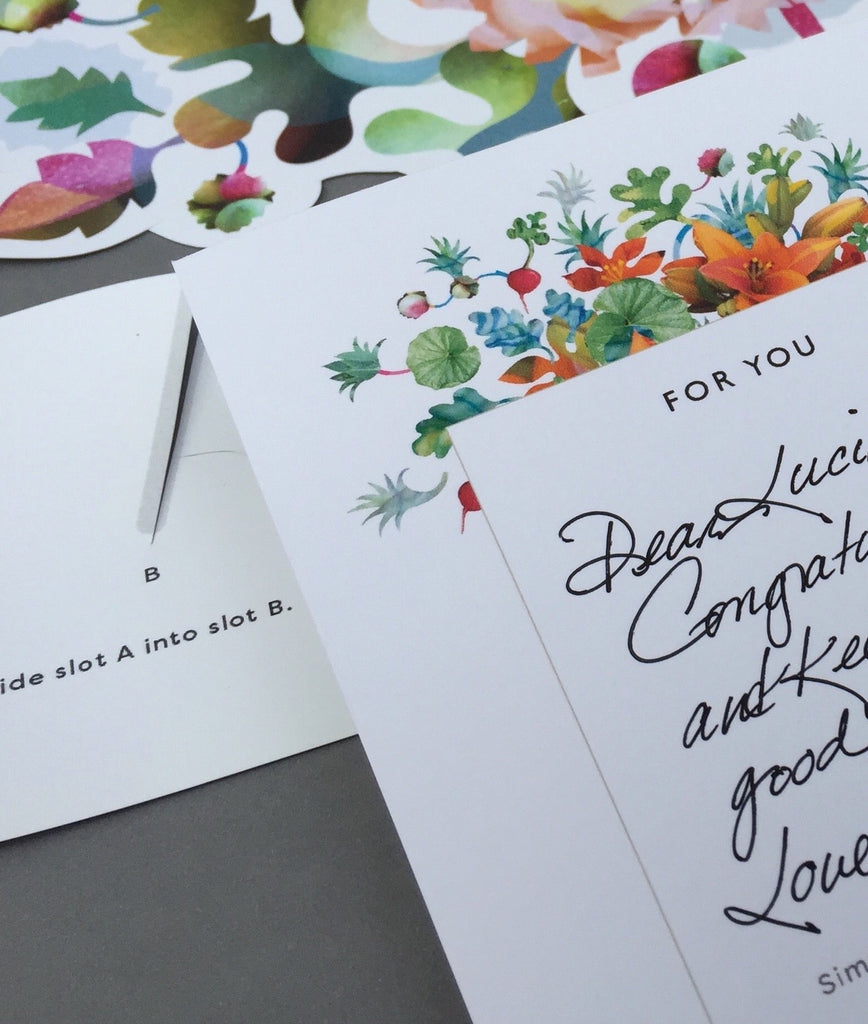 B
ide slot A into slot B.
FOR YOU
Dear Luci
Congratu
and Kee
good
Love
sim